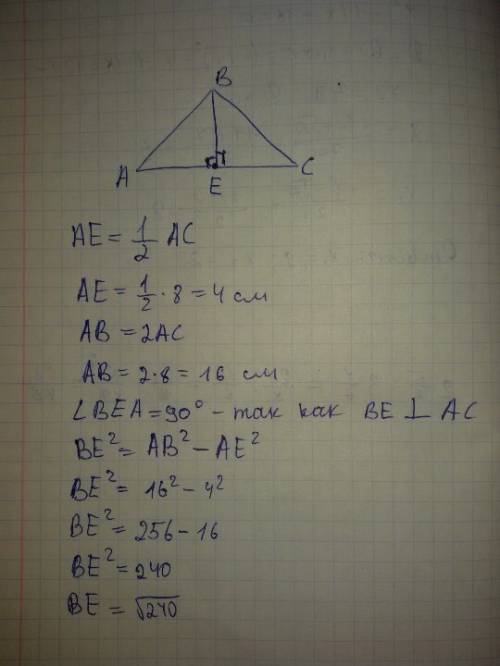 B
A E C
AE = 1/2 AC
AE = 1/2 · 8 = 4 см
AB = 2AC
AB = 2·8 = 16 см
∠BEA = 90° – так как BE ⊥ AC
BE² = AB² – AE²
BE² = 16² – 4²
BE² = 256 – 16
BE² = 240
BE = √240